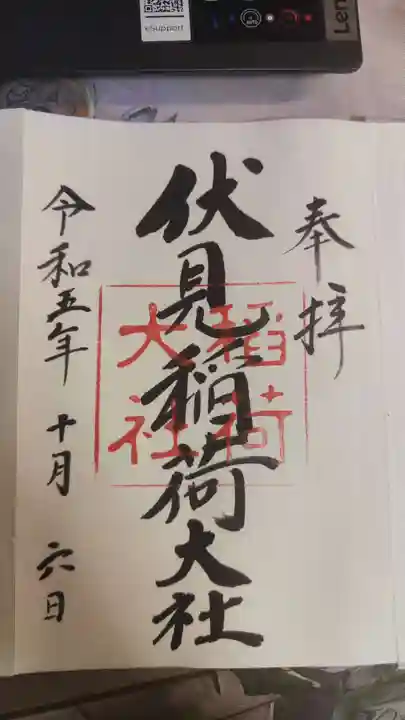 eSupport
Len
奉拝
伏見稲荷大社
稲荷
大社
令和五年 十月 六日